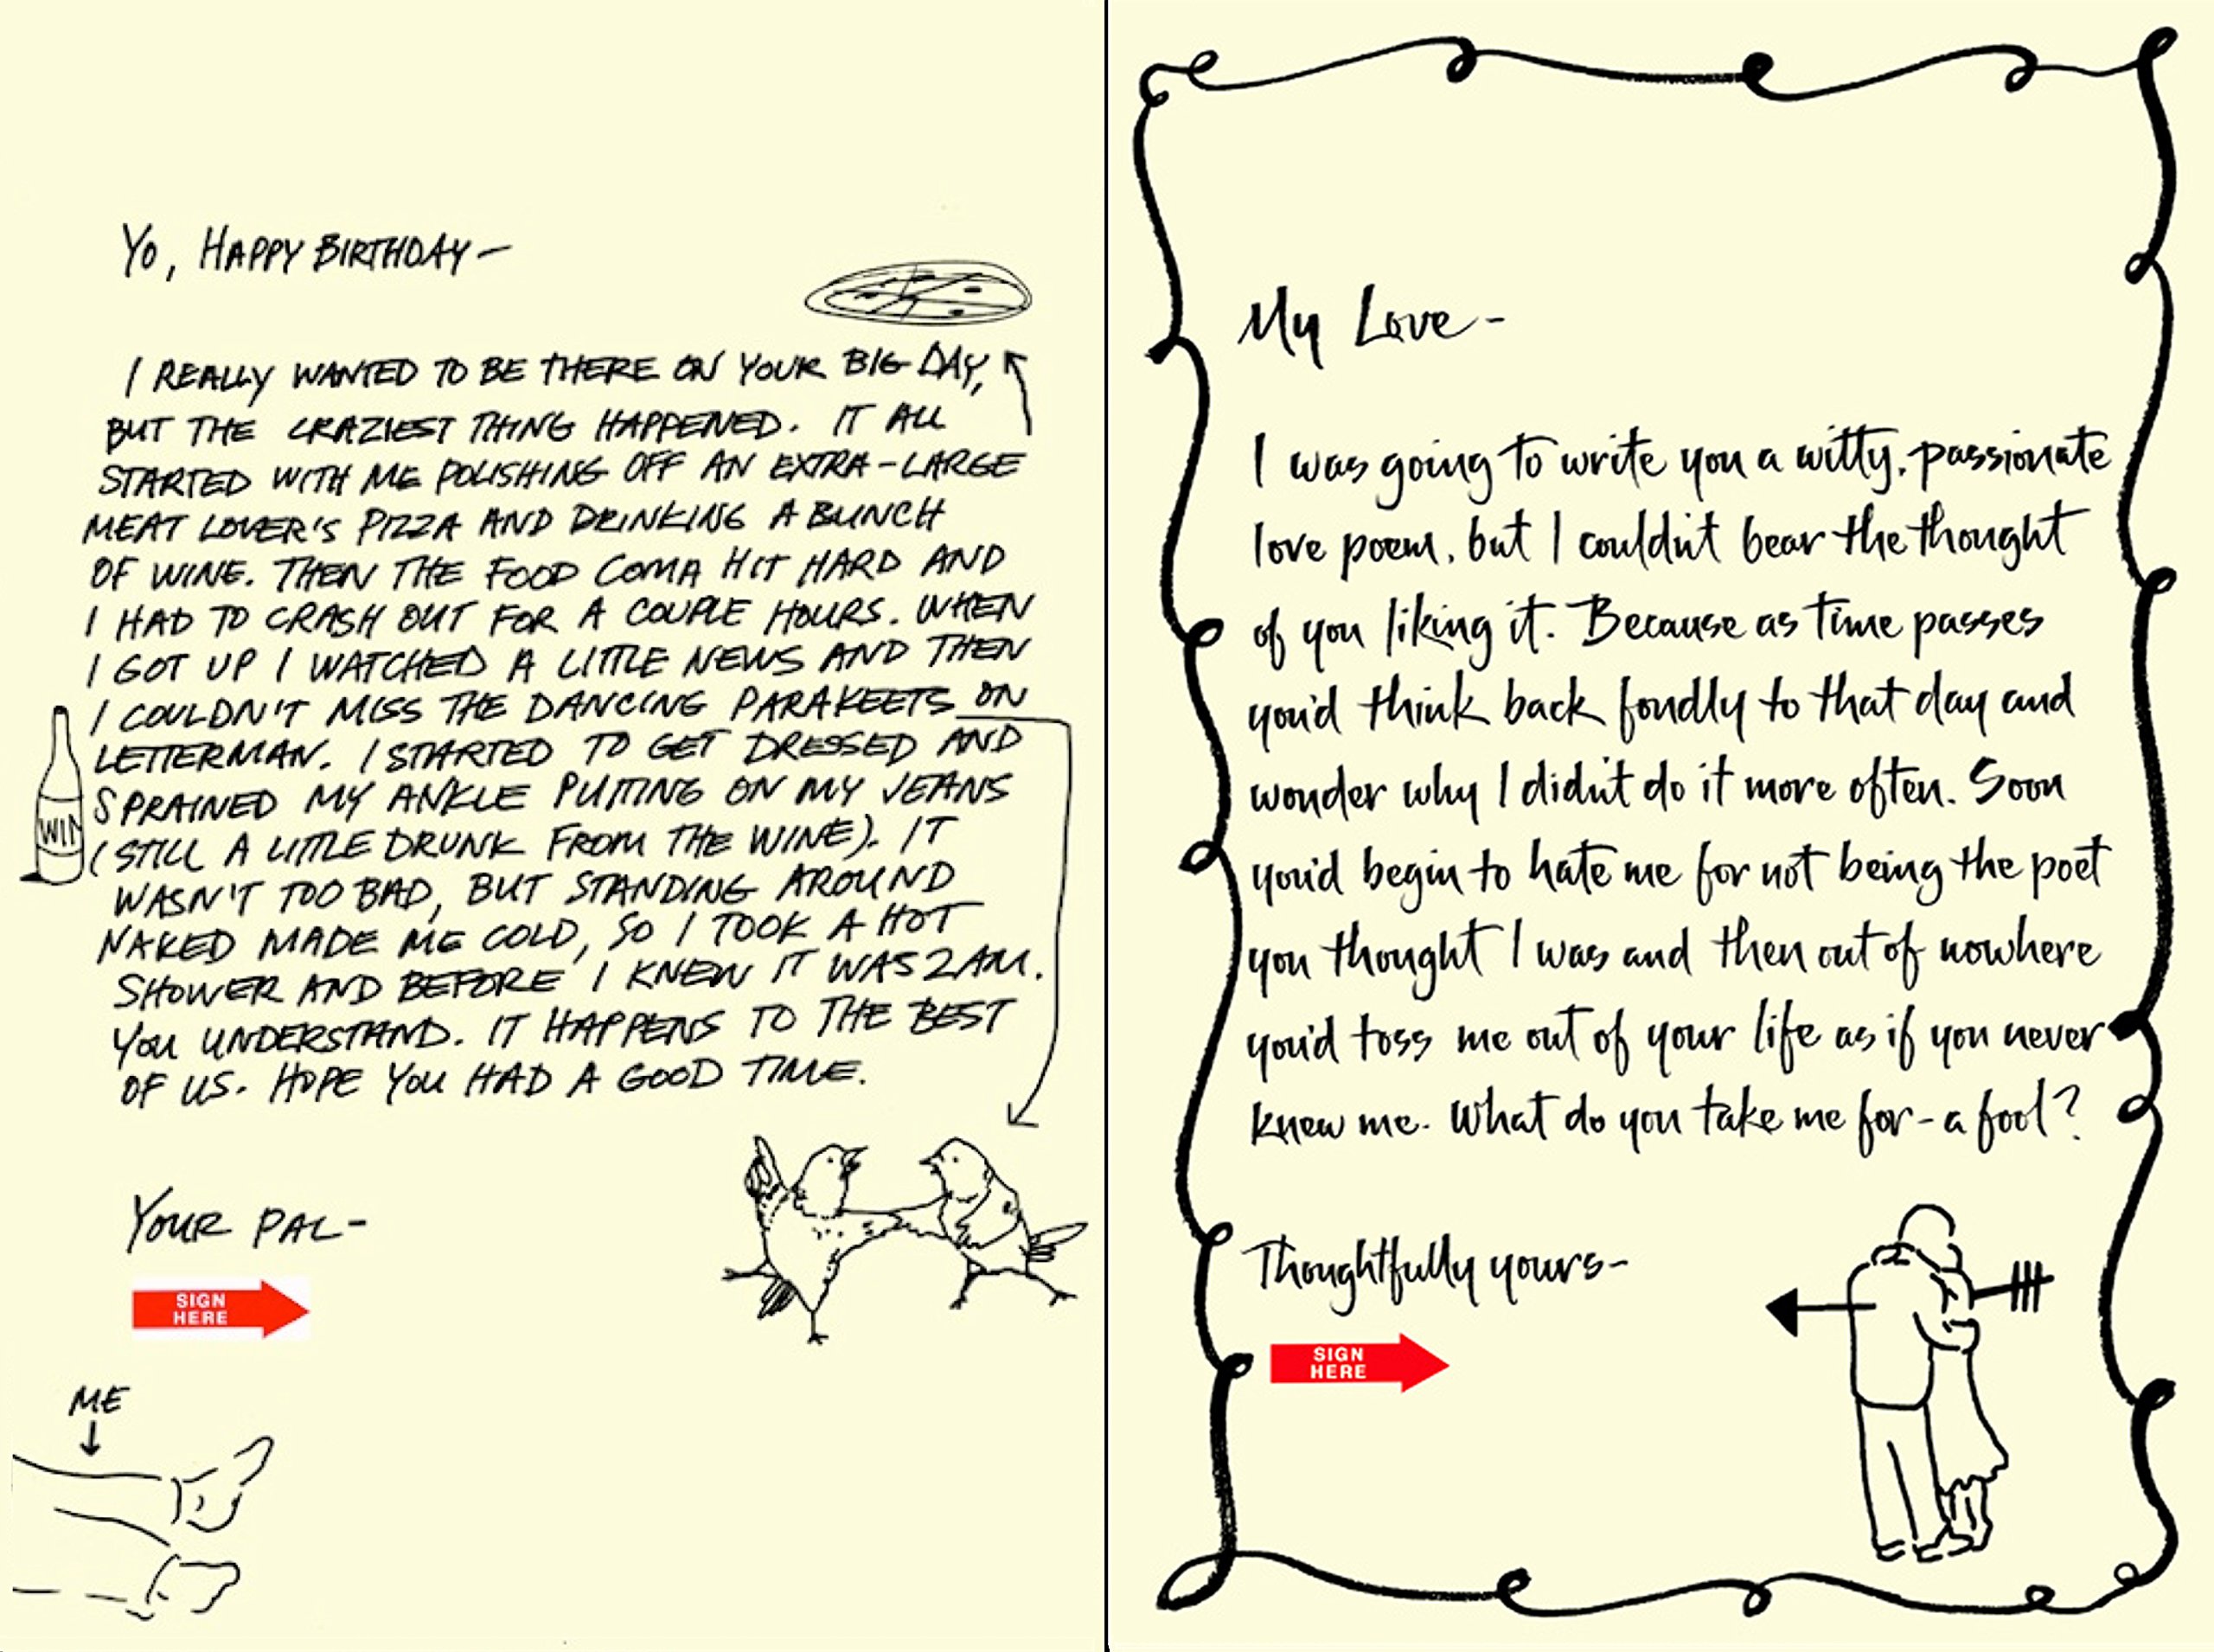 Yo, HAPPY BIRTHDAY—
I REALLY WANTED TO BE THERE ON YOUR BIG DAY,
BUT THE CRAZIEST THING HAPPENED. IT ALL
STARTED WITH ME POLISHING OFF AN EXTRA-LARGE
MEAT LOVER'S PIZZA AND DRINKING A BUNCH
OF WINE. THEN THE FOOD COMA HIT HARD AND
I HAD TO CRASH OUT FOR A COUPLE HOURS. WHEN
I GOT UP I WATCHED A LITTLE NEWS AND THEN
I COULDN'T MISS THE DANCING PARAKEETS ON
LETTERMAN. I STARTED TO GET DRESSED AND
SPRAINED MY ANKLE PUTTING ON MY JEANS
(STILL A LITTLE DRUNK FROM THE WINE). IT
WASN'T TOO BAD, BUT STANDING AROUND
NAKED MADE ME COLD, SO I TOOK A HOT
SHOWER AND BEFORE I KNEW IT WAS 2 AM.
YOU UNDERSTAND. IT HAPPENS TO THE BEST
OF US. HOPE YOU HAD A GOOD TIME.
WIN
YOUR PAL-
SIGN
HERE
ME
My Love-
I was going to write you a witty, passionate
love poem, but I couldn't bear the thought
of you liking it. Because as time passes
you'd think back fondly to that day and
wonder why I didn't do it more often. Soon
you'd begin to hate me for not being the poet
you thought I was and then out of nowhere
you'd toss me out of your life as if you never
knew me. What do you take me for-a fool?
Thoughtfully yours-
SIGN
HERE